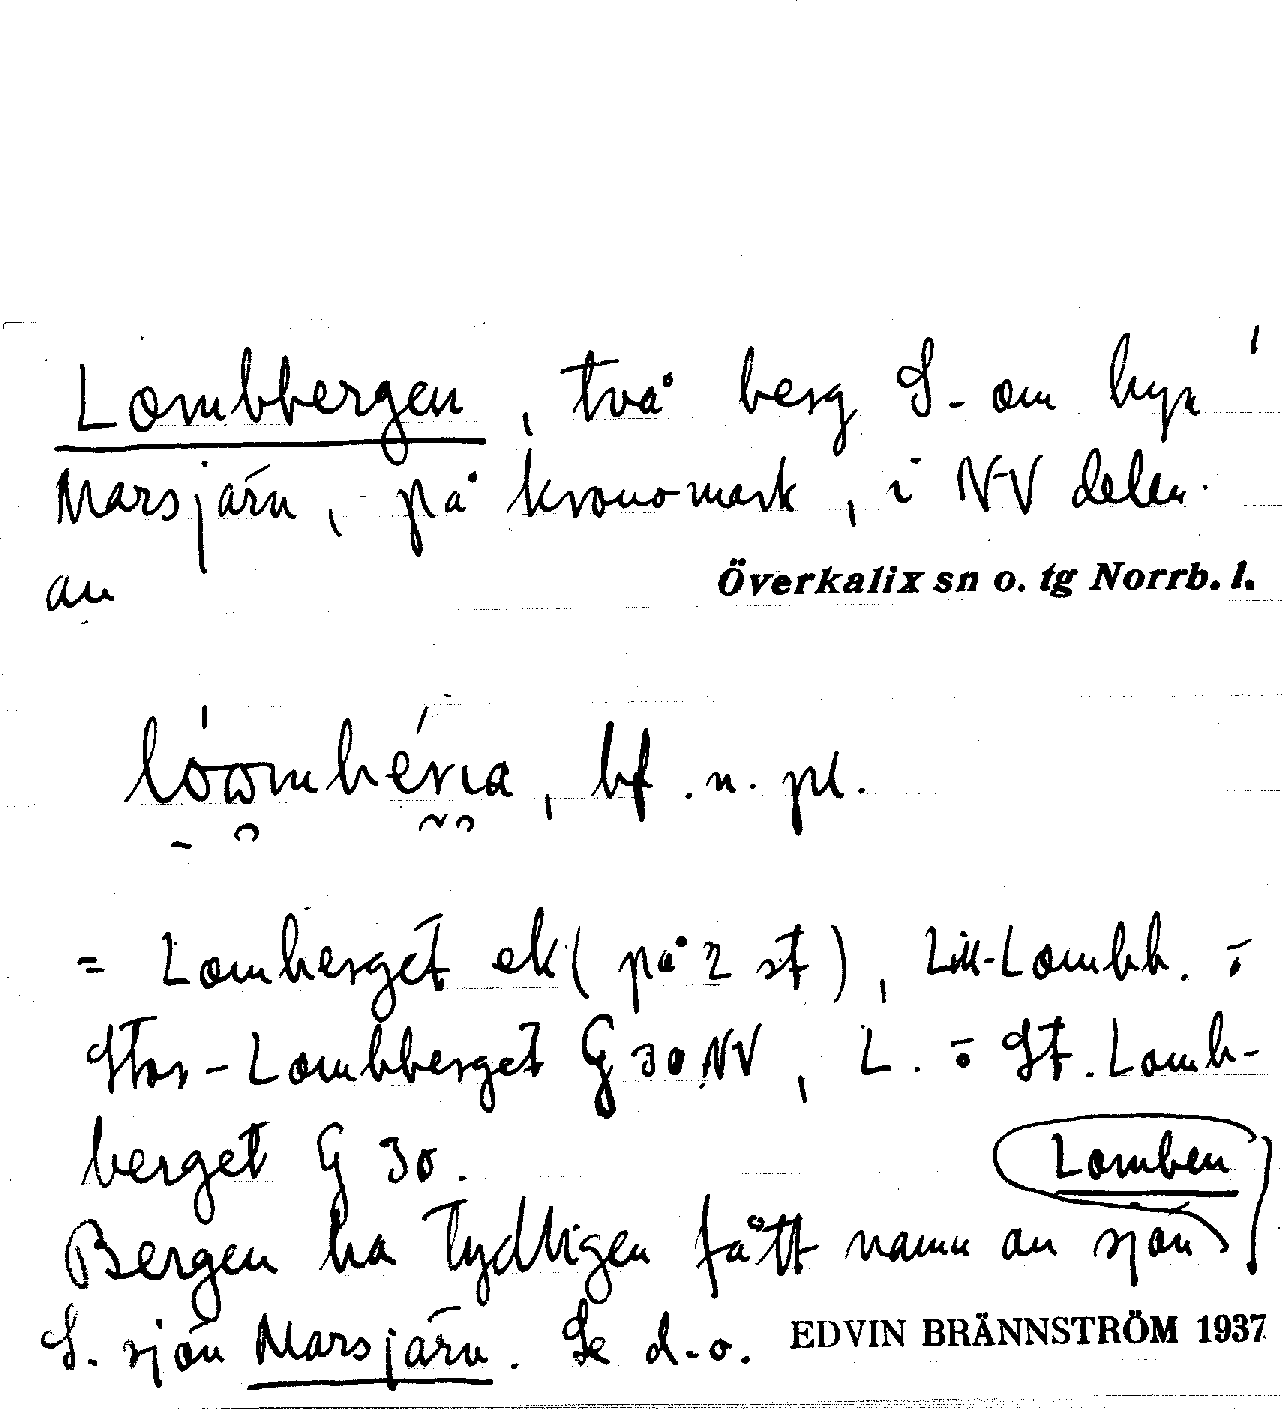 Lombbergen, två berg S. om byn
Marsjärn, på kronomark, i NV delen
av Överkalix sn o. tg Norrb. l.
bf. n. pl.
= Lomberget ek (på 2 st), Lill-Lombb. o
Stor-Lombberget G 30 NV, L. o St. Lomb-
berget G 30.
Lomben
Bergen ha tydligen fått namn av sjön
S. sjön Marsjärn. Se d.o. EDVIN BRÄNNSTRÖM 1937